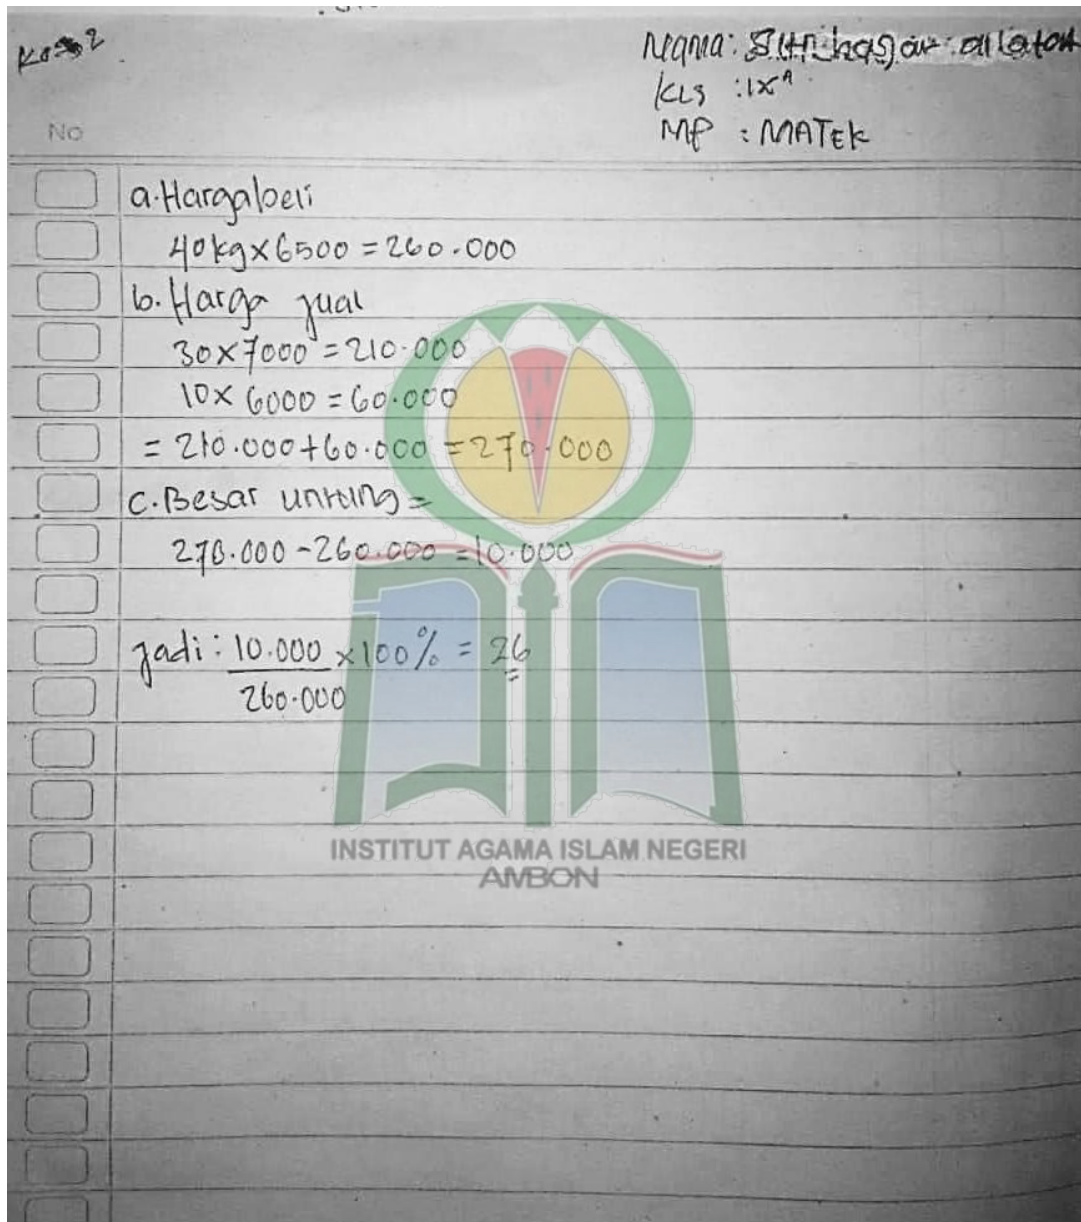 Nama:
Kls : IX A
No
MP : MATEK
a. Harga beli
40 kg × 6500 = 260.000
b. Harga jual
30 × 7000 = 210.000
10 × 6000 = 60.000
= 210.000 + 60.000 = 270.000
c. Besar untung =
270.000 - 260.000 = 10.000
Jadi : 10.000 × 100% = 26
260.000
INSTITUT AGAMA ISLAM NEGERI
AMBON